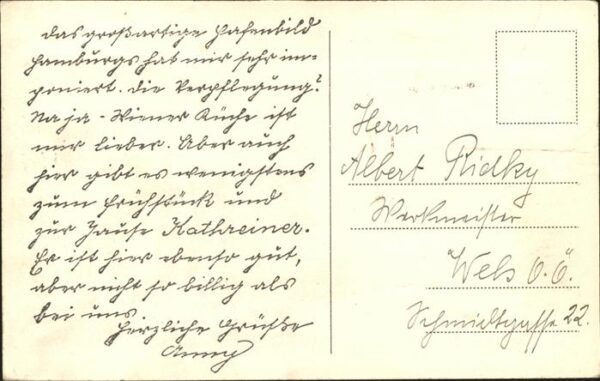 das großartige Hafenbild
Hamburgs hat mir sehr im-
poniert. Die Verpflegung?
Na ja - Wiener Küche ist
mir lieber. Aber auch
hier gibt es wenigstens
zum Frühstück und
zur Jause Kathreiner.
Er ist hier ebenso gut,
aber nicht so billig als
bei uns.
Herzliche Grüße
Anny
Herrn
Albert Ridky
Werkmeister
Wels O.Ö.
Schmidtgasse 22.